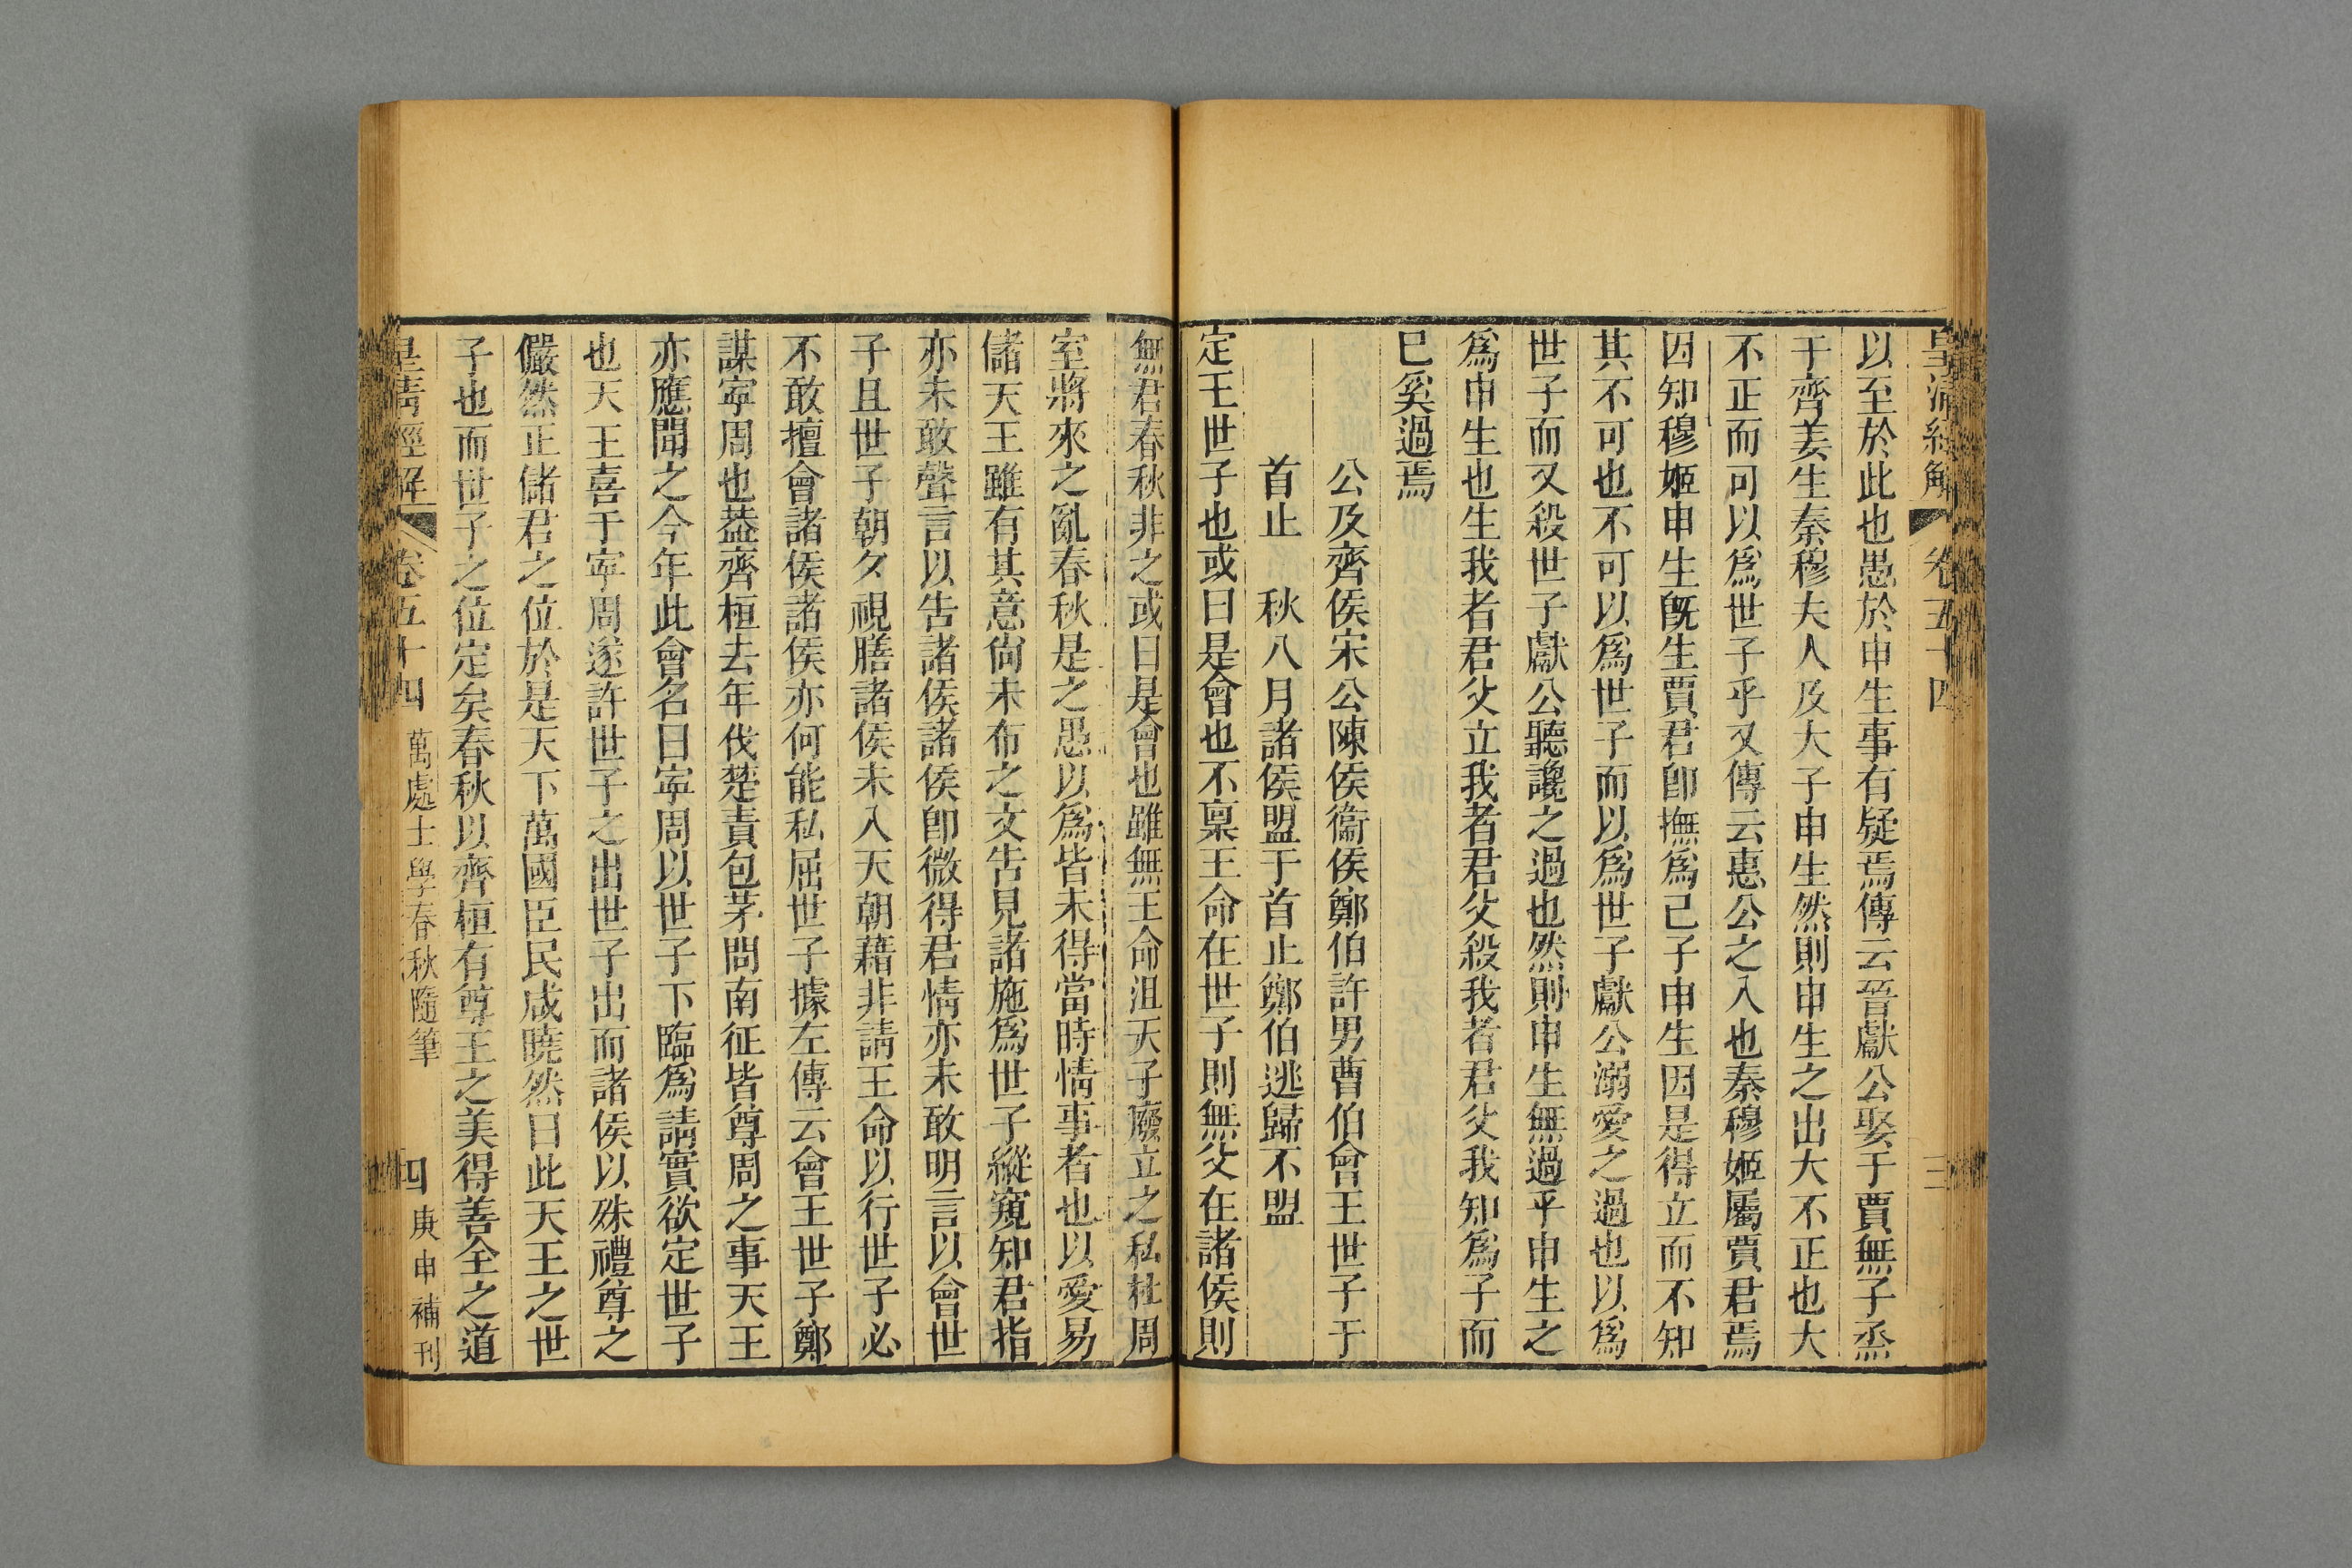 皇清經解 卷五十四 三
以至於此也愚於申生事有疑焉傳云晉獻公娶于賈無子烝
于齊姜生秦穆夫人及大子申生然則申生之出大不正也大
不正而可以爲世子乎又傳云惠公之入也秦穆姬屬賈君焉
因知穆姬申生旣生賈君卽撫爲己子申生因是得立而不知
其不可也不可以爲世子而以爲世子獻公溺愛之過也以爲
世子而又殺世子獻公聽讒之過也然則申生無過乎申生之
爲申生也生我者君父立我者君父殺我者君父我知爲子而
已奚過焉
公及齊侯宋公陳侯衞侯鄭伯許男曹伯會王世子于
首止 秋八月諸侯盟于首止鄭伯逃歸不盟
定王世子也或曰是會也不稟王命在世子則無父在諸侯則
無君春秋非之或曰是會也雖無王命沮天子廢立之私杜周
室將來之亂春秋是之愚以爲皆未得當時情事者也以愛易
儲天王雖有其意尙未布之文告見諸施爲世子縱窺知君指
亦未敢聲言以告諸侯諸侯卽微得君情亦未敢明言以會世
子且世子朝夕視膳諸侯未入天朝藉非請王命以行世子必
不敢擅會諸侯諸侯亦何能私屈世子據左傳云會王世子鄭
謀寧周也葢齊桓去年伐楚責包茅問南征皆尊周之事天王
亦應聞之今年此會名曰寧周以世子下臨爲請實欲定世子
也天王喜于寧周遂許世子之出世子出而諸侯以殊禮尊之
儼然正儲君之位於是天下萬國臣民咸曉然曰此天王之世
子也而世子之位定矣春秋以齊桓有尊王之美得善全之道
皇清經解 卷五十四 萬處士學春秋隨筆 四 庚申補刊